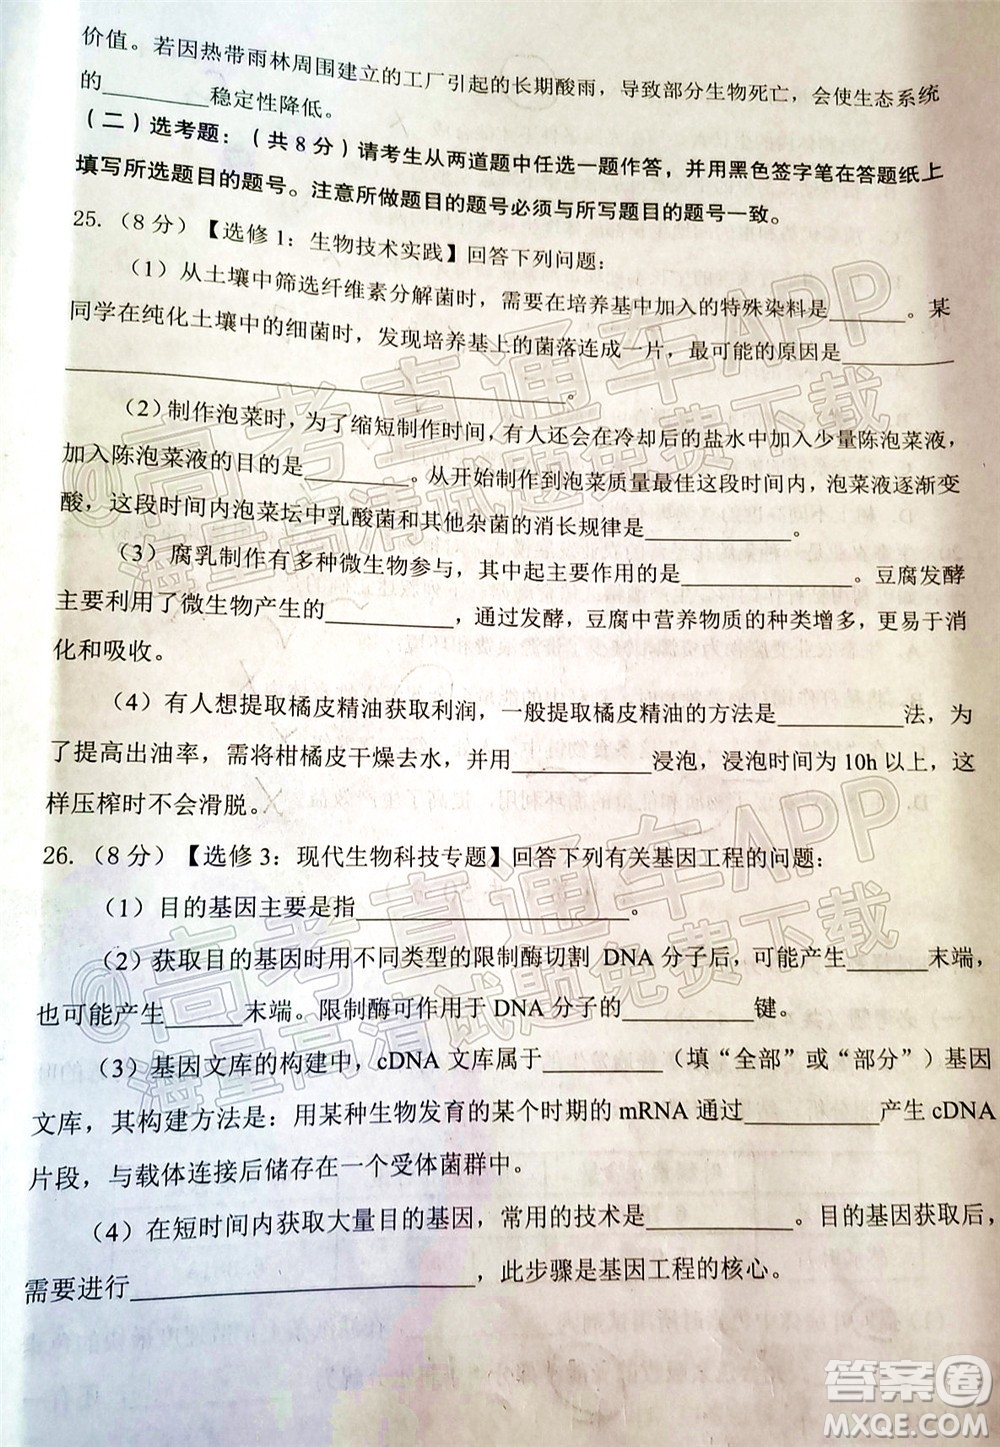 价值。若因热带雨林周围建立的工厂引起的长期酸雨，导致部分生物死亡，会使生态系统
的________稳定性降低。
（二）选考题：（共 8 分）请考生从两道题中任选一题作答，并用黑色签字笔在答题纸上
填写所选题目的题号。注意所做题目的题号必须与所写题目的题号一致。
25.（8 分）【选修 1：生物技术实践】回答下列问题：
（1）从土壤中筛选纤维素分解菌时，需要在培养基中加入的特殊染料是______。某
同学在纯化土壤中的细菌时，发现培养基上的菌落连成一片，最可能的原因是________
________________________________________。
（2）制作泡菜时，为了缩短制作时间，有人还会在冷却后的盐水中加入少量陈泡菜液，
加入陈泡菜液的目的是________。从开始制作到泡菜质量最佳这段时间内，泡菜液逐渐变
酸，这段时间内泡菜坛中乳酸菌和其他杂菌的消长规律是__________。
（3）腐乳制作有多种微生物参与，其中起主要作用的是__________。豆腐发酵
主要利用了微生物产生的__________，通过发酵，豆腐中营养物质的种类增多，更易于消
化和吸收。
（4）有人想提取橘皮精油获取利润，一般提取橘皮精油的方法是__________法，为
了提高出油率，需将柑橘皮干燥去水，并用__________浸泡，浸泡时间为 10h 以上，这
样压榨时不会滑脱。
26.（8 分）【选修 3：现代生物科技专题】回答下列有关基因工程的问题：
（1）目的基因主要是指____________________。
（2）获取目的基因时用不同类型的限制酶切割 DNA 分子后，可能产生______末端，
也可能产生______末端。限制酶可作用于 DNA 分子的________键。
（3）基因文库的构建中，cDNA 文库属于__________（填“全部”或“部分”）基因
文库，其构建方法是：用某种生物发育的某个时期的 mRNA 通过__________产生 cDNA
片段，与载体连接后储存在一个受体菌群中。
（4）在短时间内获取大量目的基因，常用的技术是__________。目的基因获取后，
需要进行________________________，此步骤是基因工程的核心。
@高考直通车APP
海量高清试题免费下载
@高考直通车APP
海量高清试题免费下载
答案圈
MXQE.COM